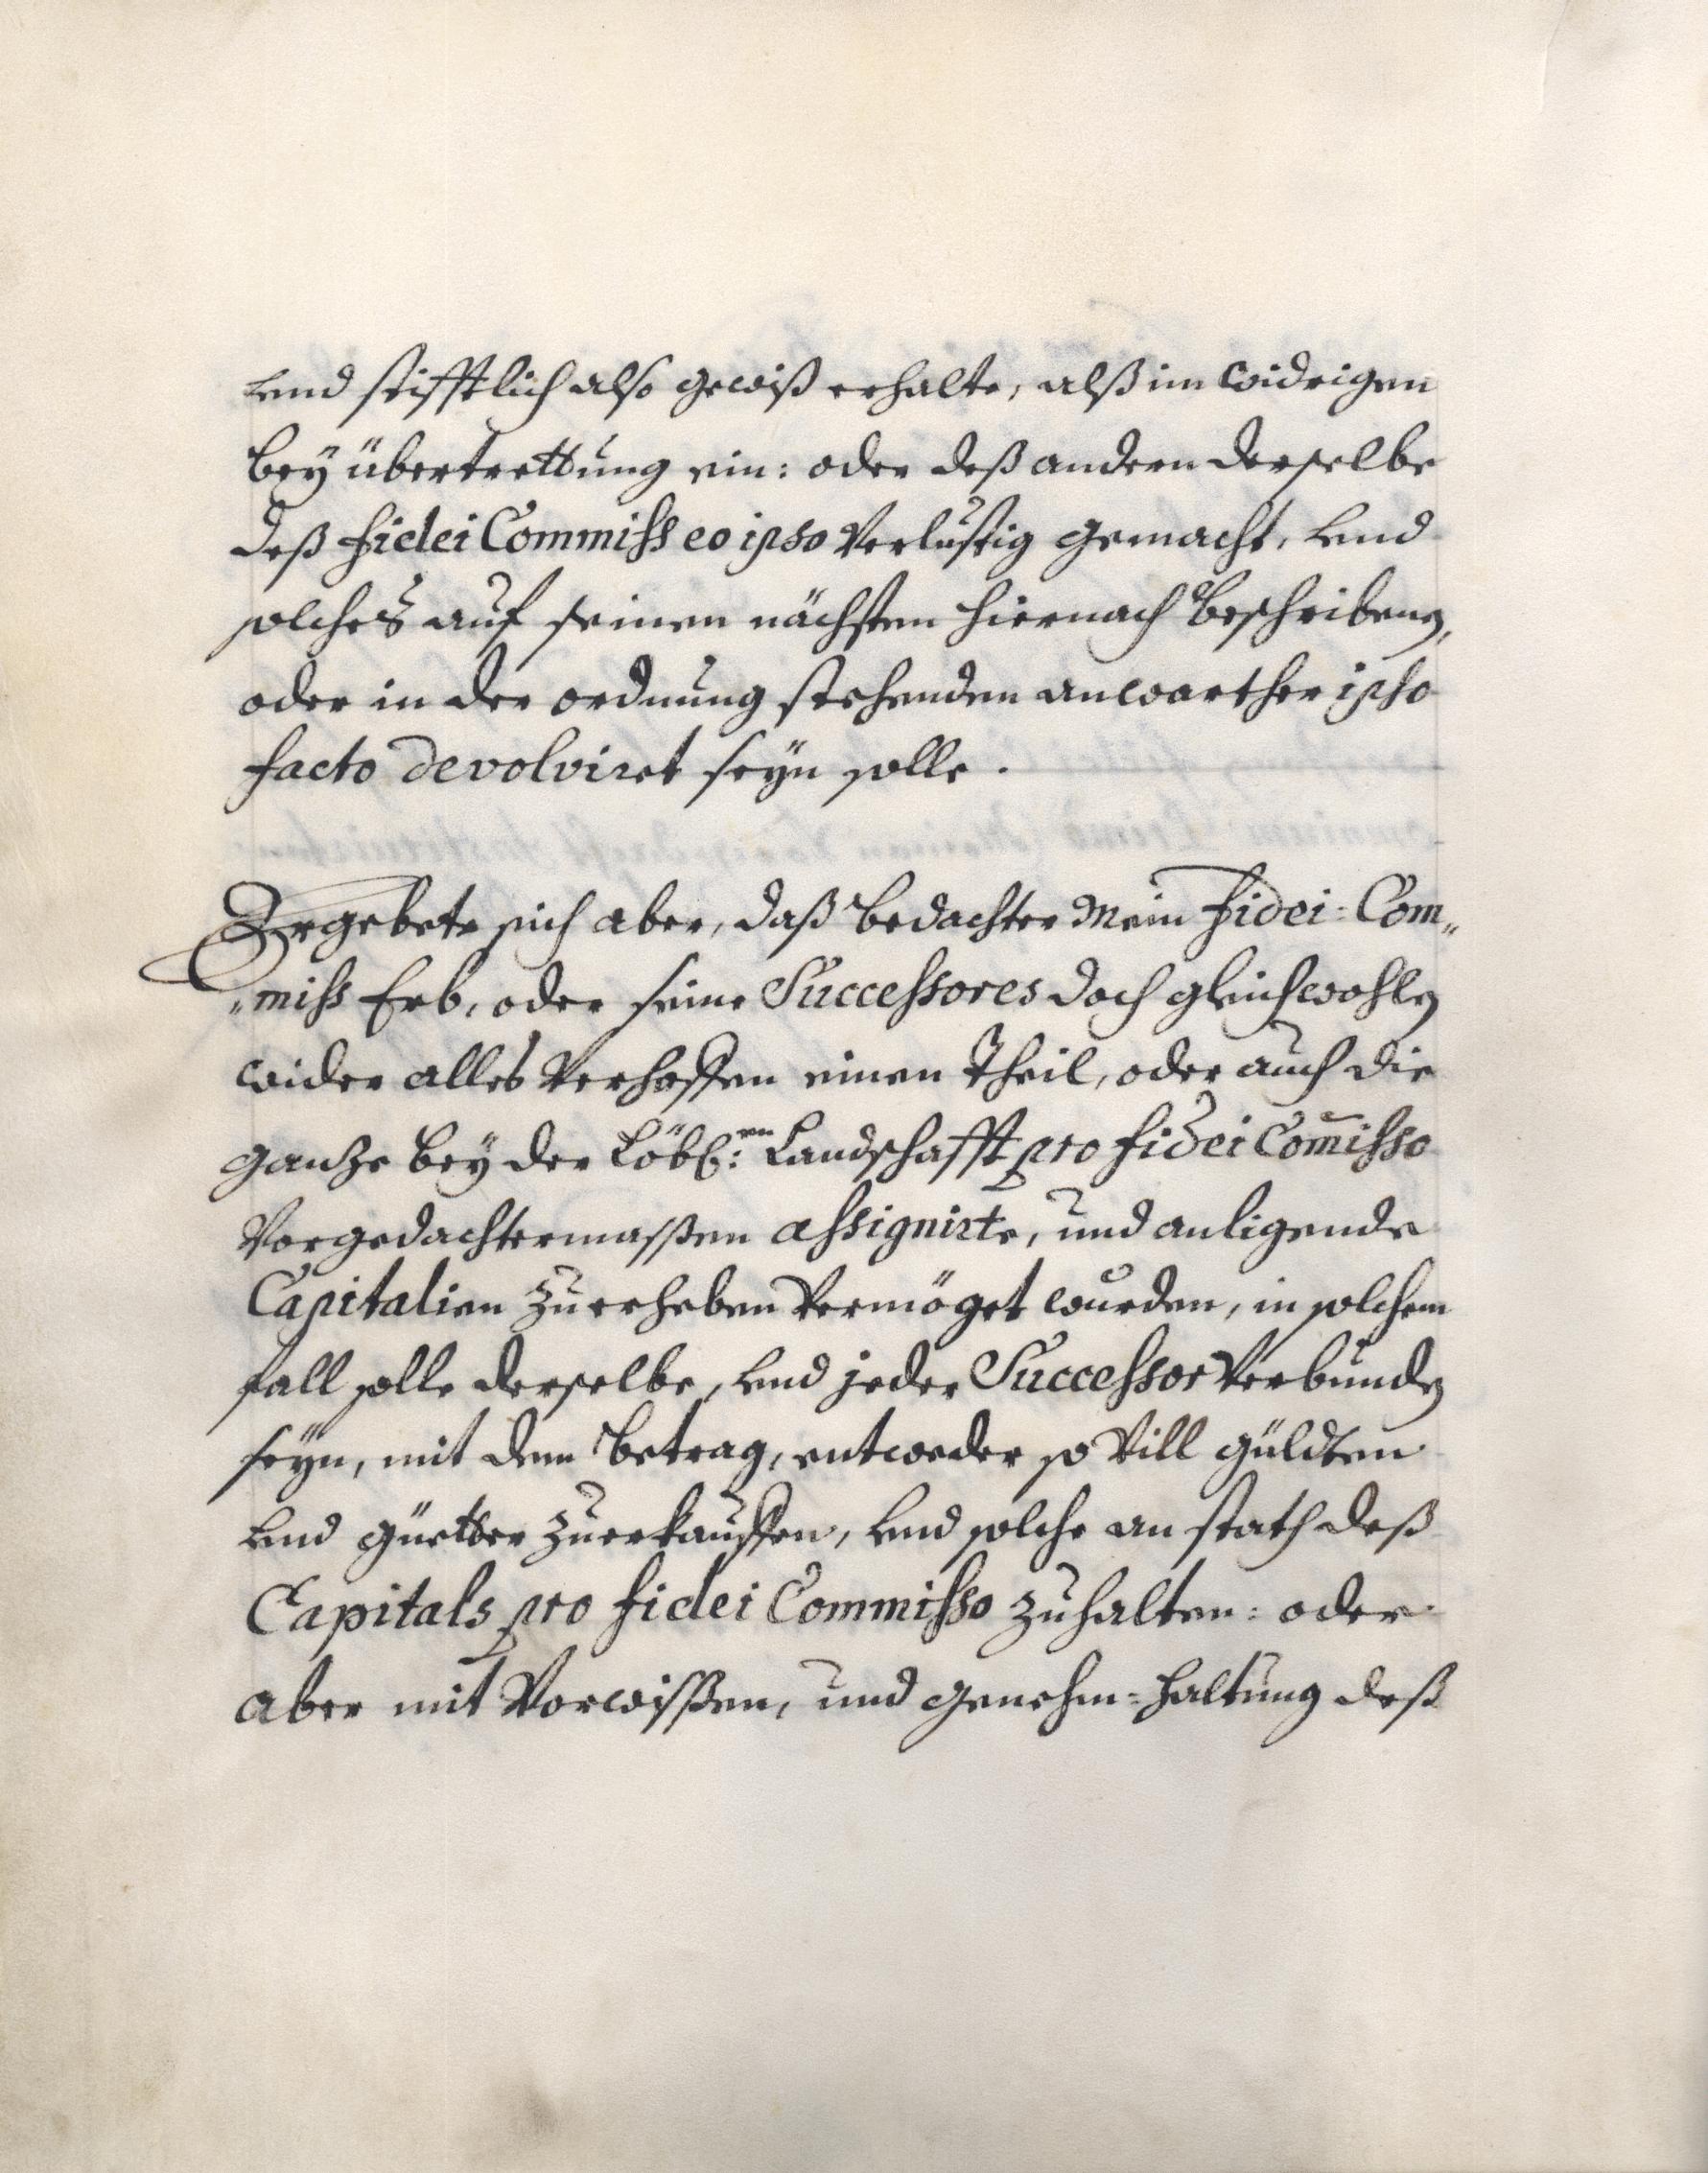 und stifftlich also gewiß erhalte, alß im widrigen
bey übertrettung ein: oder deß andern derselbe
deß fidei Commiss eo ipso verlustig gemacht, und
solches auf seinen nächsten hiernach beschribenen,
oder in der ordnung stehenden anwarther ipso
facto devolviret seyn solle.
Ergebete sich aber, daß bedachter mein fidei=Com„
„miss Erb, oder seine Successores doch gleichwohlen
wider alles verhoffen einen theil, oder auch die
ganze bey der Löbl:en Landschafft pro fidei Com̄isso
vorgedachtermassen assignirte, und anligende
Capitalien zuerheben vermöget wurden, in solchem
fall solle derselbe, und jeder Successor verbunden
seyn, mit dem betrag, entweder so vill güldten
und güetter zuerkauffen, und solche an stath deß
Capitals pro fidei Commisso zuhalten: oder
aber mit vorwissen, und genehm=haltung deß